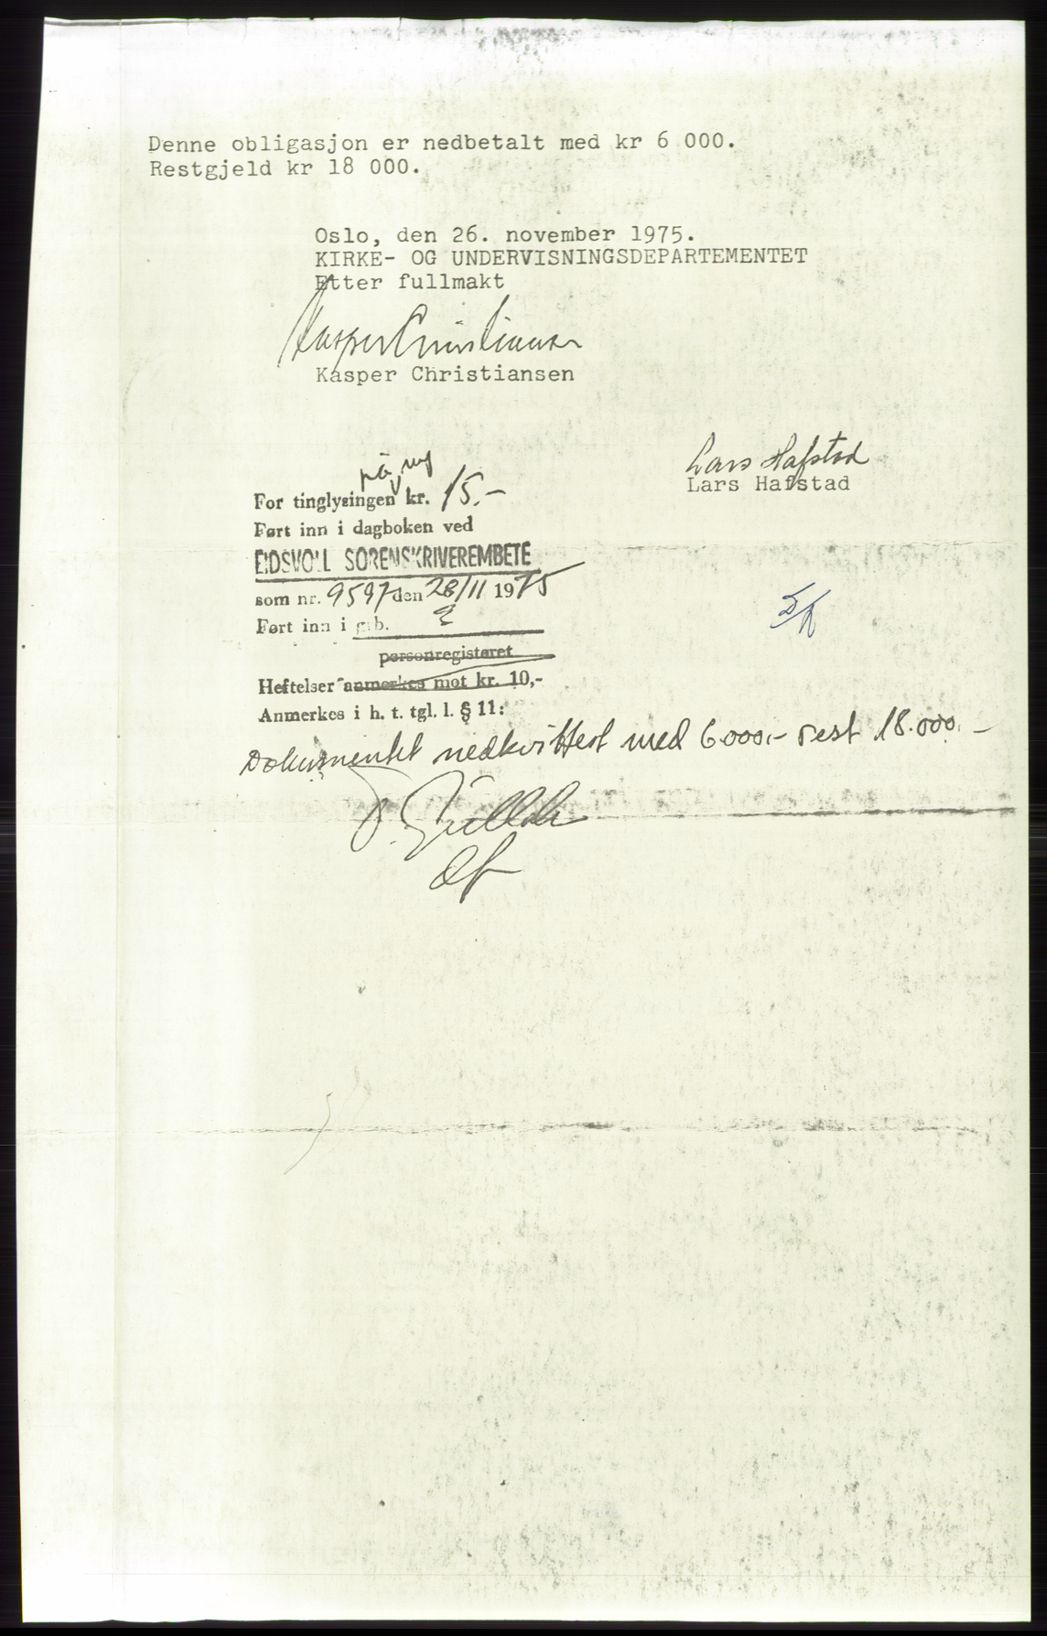 Denne obligasjon er nedbetalt med kr 6 000.
Restgjeld kr 18 000.
Oslo, den 26. november 1975.
KIRKE- OG UNDERVISNINGSDEPARTEMENTET
Etter fullmakt
Kasper Christiansen
Kasper Christiansen
Lars Hafstad
Lars Hafstad
på ny
For tinglysingen kr. 15.-
Ført inn i dagboken ved
EIDSVOLL SORENSKRIVEREMBETE
som nr. 9597 den 28/11 1975
Ført inn i grb.
personregisteret
Heftelser anmerkes mot kr. 10,-
Anmerkes i h. t. tgl. l. § 11:
Dokumentet nedkvittert med 6000.- rest 18.000.-